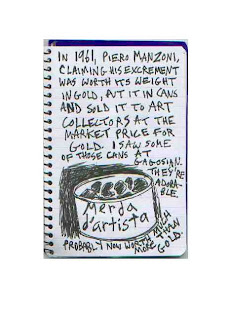 IN 1961, PIERO MANZONI,
CLAIMING HIS EXCREMENT
WAS WORTH ITS WEIGHT
IN GOLD, PUT IT IN CANS
AND SOLD IT TO ART
COLLECTORS AT THE
MARKET PRICE FOR
GOLD. I SAW SOME
OF THOSE CANS AT
GAGOSIAN.
THEY'RE
ADORA-
BLE.
Merda
d'artista
PROBABLY NOW WORTH MUCH
MORE THAN
GOLD.